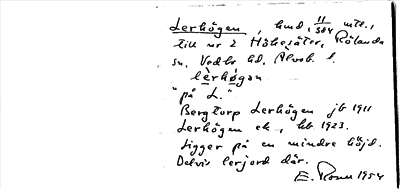 Lerhögen, hmd 11/384 mtl.,
till nr 2 Håkesäter, Rölanda
sn, Vedbo hd, Älvsb. l.
lèrhø̀gən
"på L."
Bergtorp Lerhögen jb 1911
Lerhögen ek., hb 1923.
Ligger på en mindre höjd.
Delvis lerjord där.
E. 1954